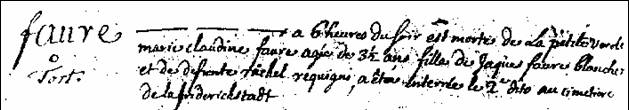 faure
Fort.
a 6 heures du soir est mortes de La petite verole
marie claudine faure agée de 3½ ans fille de Jaques faure blancher
et de defunte rachel requigni, a êté interrée le 2e dito au cimetiere
de la friderichstadt